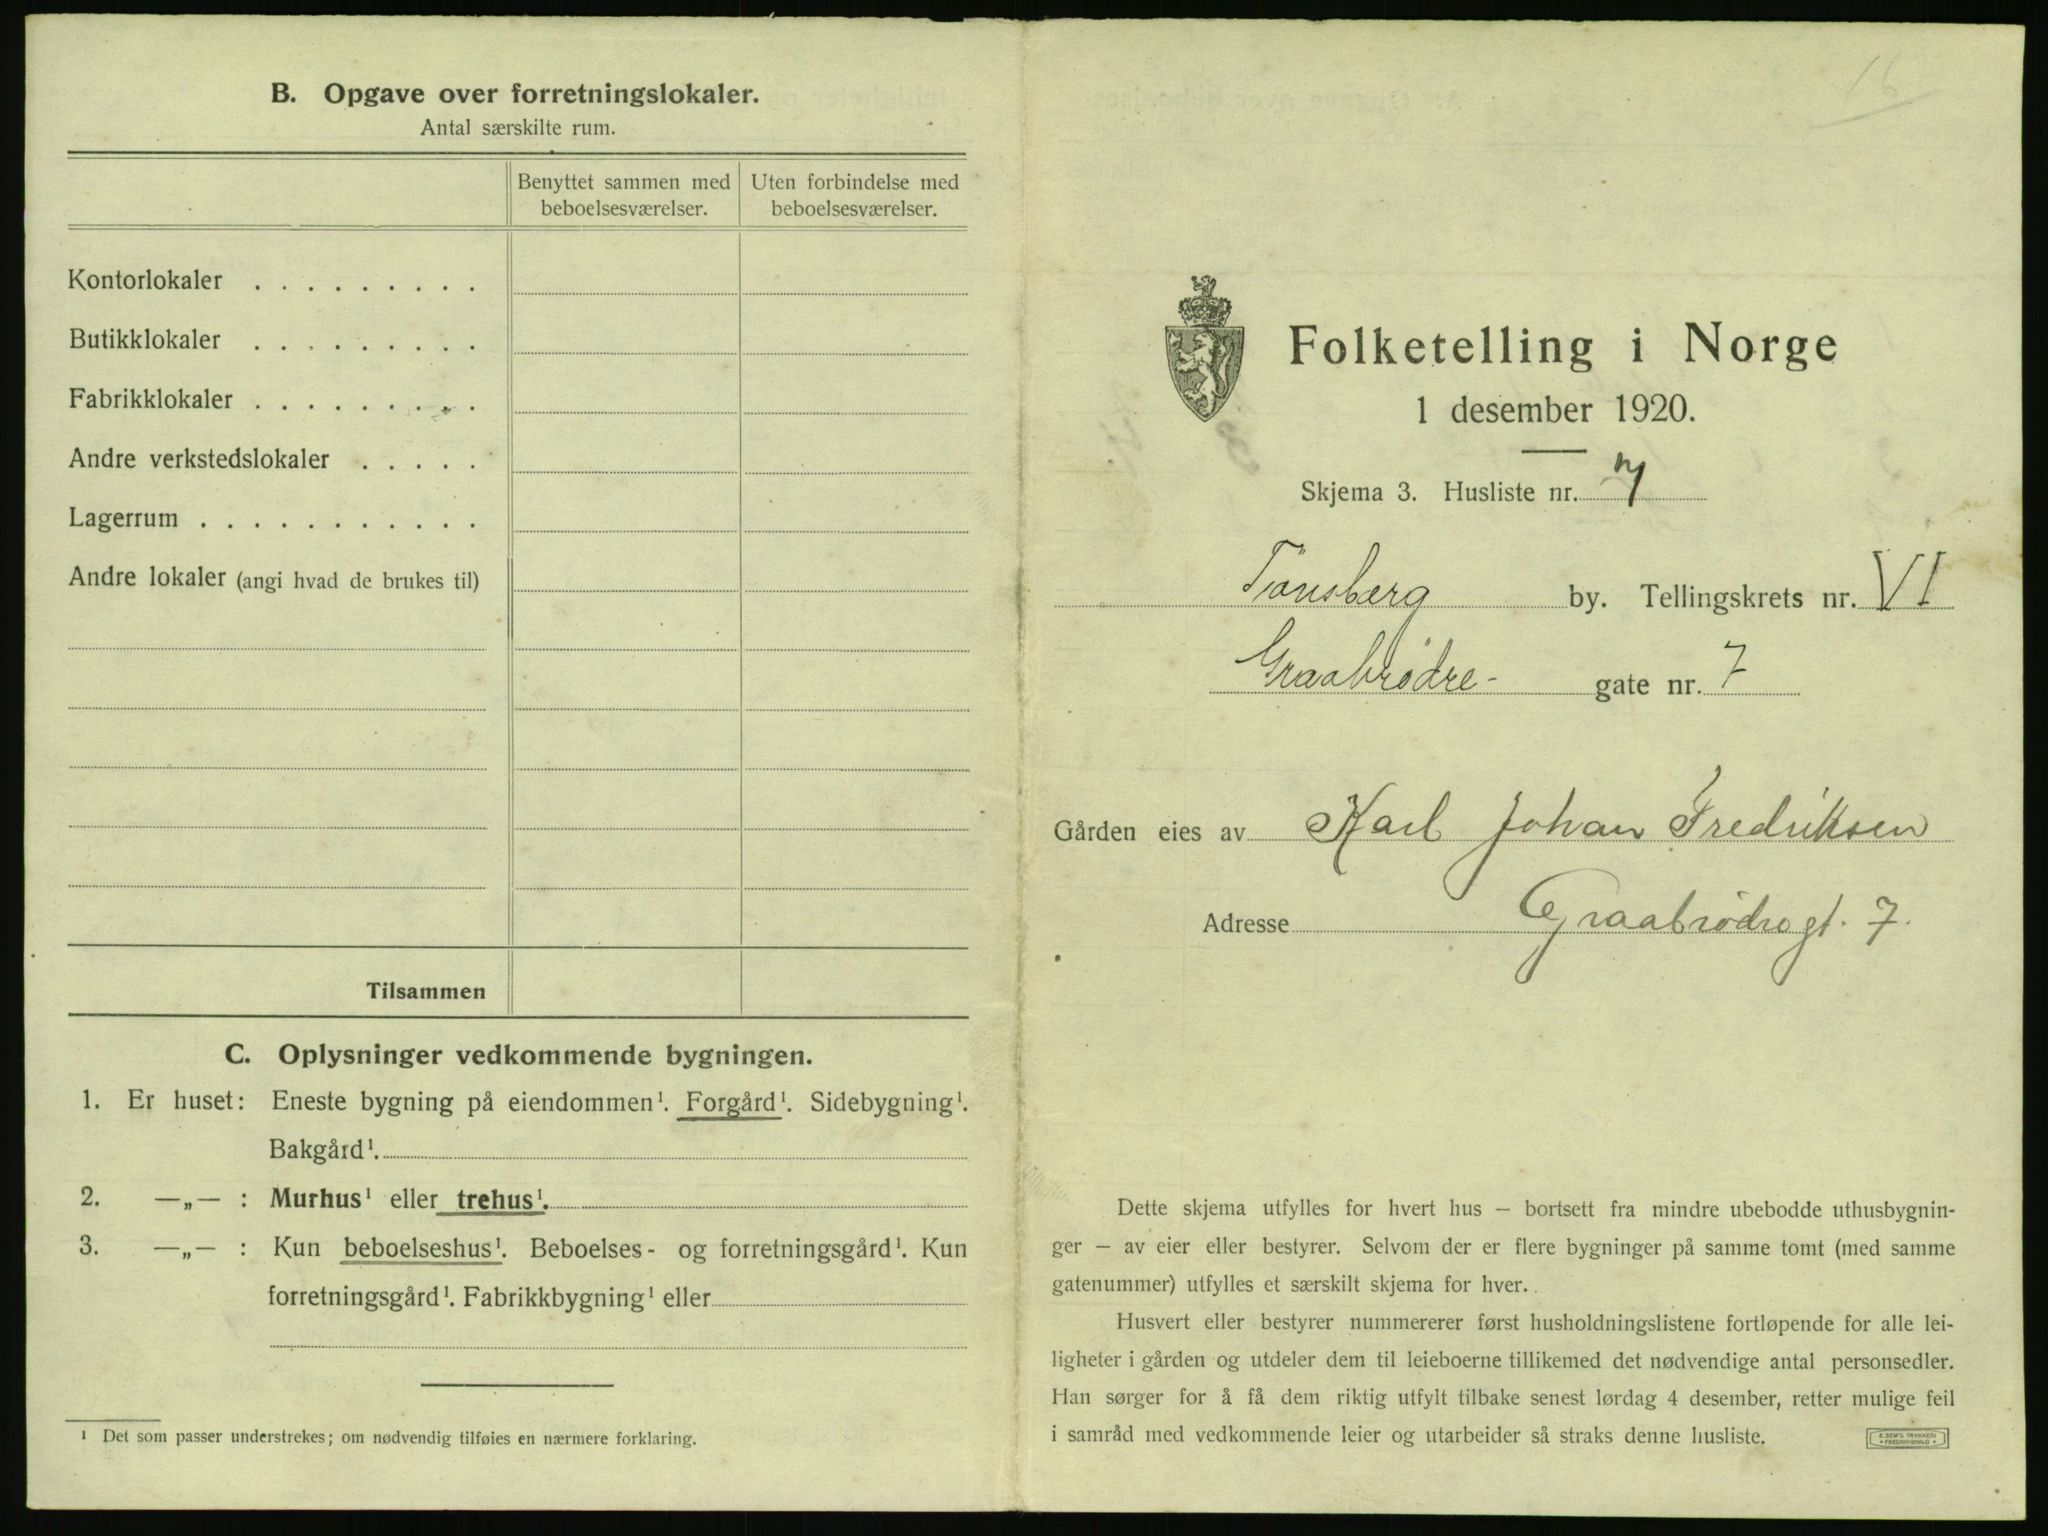 B. Opgave over forretningslokaler.
Antal særskilte rum.
Benyttet sammen med beboelsesværelser.
Uten forbindelse med beboelsesværelser.
Kontorlokaler . . . . . . . . .
Butikklokaler . . . . . . . . .
Fabrikklokaler . . . . . . . . .
Andre verkstedslokaler . . . . .
Lagerrum . . . . . . . . . . .
Andre lokaler (angi hvad de brukes til)
Tilsammen
C. Oplysninger vedkommende bygningen.
1. Er huset: Eneste bygning på eiendommen¹. Forgård¹. Sidebygning¹.
Bakgård¹.
2. —„— : Murhus¹ eller trehus¹.
3. —„— : Kun beboelseshus¹. Beboelses- og forretningsgård¹. Kun
forretningsgård¹. Fabrikkbygning¹ eller
¹ Det som passer understrekes; om nødvendig tilføies en nærmere forklaring.
16
Folketelling i Norge
1 desember 1920.
Skjema 3. Husliste nr. 7
Tönsberg by. Tellingskrets nr. VI
Graabrødre- gate nr. 7
Gården eies av Karl Johan Fredriksen
Adresse Graabrødregt. 7.
Dette skjema utfylles for hvert hus — bortsett fra mindre ubebodde uthusbygnin-
ger — av eier eller bestyrer. Selvom der er flere bygninger på samme tomt (med samme
gatenummer) utfylles et særskilt skjema for hver.
Husvert eller bestyrer nummererer først husholdningslistene fortløpende for alle lei-
ligheter i gården og utdeler dem til leieboerne tillikemed det nødvendige antal personsedler.
Han sørger for å få dem riktig utfylt tilbake senest lørdag 4 desember, retter mulige feil
i samråd med vedkommende leier og utarbeider så straks denne husliste.
E. SEM'S TRYKKERI
• FREDRIKSHALD •